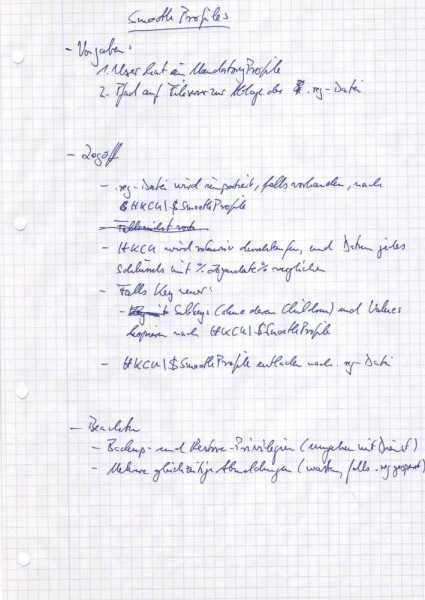 Smooth Profiles
- Vorgaben:
1. User hat ein Mandatory Profile
2. Pfad auf Fileserver zur Ablage der .reg-Datei
- Logoff
- .reg-Datei wird importiert, falls vorhanden, nach
HKCU\$SmoothProfile
Falls nicht
- HKCU wird rekursiv durchlaufen, und Datum jedes
Schlüssels mit % % verglichen
- Falls Key neuer:
- Subkeys (ohne deren Children) und Values
kopieren nach HKCU\$SmoothProfile
- HKCU\$SmoothProfile entladen nach .reg-Datei
- Beachten
- Backup- und Restore-Privilegien (umgehen mit Dienst)
- Mehrere gleichzeitige Abmeldungen (warten, falls .reg gesperrt)